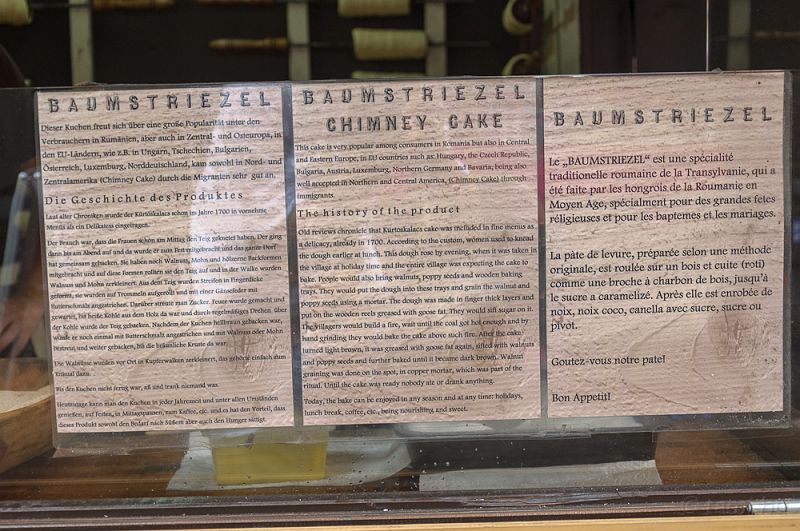 BAUMSTRIEZEL
Dieser Kuchen freut sich über eine große Popularität unter den
Verbrauchern in Rumänien, aber auch in Zentral- und Osteuropa, in
den EU-Ländern, wie z.B. in Ungarn, Tschechien, Bulgarien,
Österreich, Luxemburg, Norddeutschland, kam sowohl in Nord- und
Zentralamerika (Chimney Cake) durch die Migranten sehr gut an.
Die Geschichte des Produktes
Laut alter Chroniken wurde der Kürtöskalacs schon im Jahre 1700 in vornehme
Menüs als ein Delikatess eingetragen.
Der Brauch war, dass die Frauen schon am Mittag den Teig geknetet haben. Der ging
dann bis am Abend auf und da wurde er zum Fest mitgebracht und das ganze Dorf
hat gemeinsam gebacken. Sie haben noch Walnuss, Mohn und hölzerne Backformen
mitgebracht und auf diese Formen rollten sie den Teig auf und in der Walke wurden
Walnuss und Mohn zerkleinert. Aus dem Teig wurden Streifen in Fingerdicke
geformt, sie wurden auf Trommeln aufgerollt und mit einer Gänsefeder mit
Butterschmalz angestreichelt. Darüber streute man Zucker. Feuer wurde gemacht und
gewartet, bis heiße Kohle aus dem Holz da war und durch regelmäßiges Drehen, über
der Kohle wurde der Teig gebacken. Nachdem der Kuchen hellbraun gebacken war,
wurde er noch einmal mit Butterschmalz angestrichen und mit Walnuss oder Mohn
bestreut und weiter gebacken, bis die bräunliche Kruste da war.
Die Walnüsse wurden vor Ort in Kupferwalken zerkleinert, das gehörte einfach zum
Ritual dazu.
Bis der Kuchen nicht fertig war, aß und trank niemand was.
Heutzutage kann man den Kuchen in jeder Jahreszeit und unter allen Umständen
genießen, auf Festen, in Mittagspausen, zum Kaffee, etc. und es hat den Vorteil, dass
dieses Produkt sowohl den Bedarf nach Süßem aber auch den Hunger sättigt.
BAUMSTRIEZEL
CHIMNEY CAKE
This cake is very popular among consumers in Romania but also in Central
and Eastern Europe, in EU countries such as: Hungary, the Czech Republic,
Bulgaria, Austria, Luxemburg, Northern Germany and Bavaria, being also
well accepted in Northern and Central America, (Chimney Cake) through
immigrants.
The history of the product
Old reviews chronicle that Kurtoskalacs cake was included in fine menus as
a delicacy, already in 1700. According to the custom, women used to knead
the dough earlier at lunch. This dough rose by evening, when it was taken in
the village at holiday time and the entire village was expecting the cake to
bake. People would also bring walnuts, poppy seeds and wooden baking
trays. They would put the dough into these trays and grain the walnut and
poppy seeds using a mortar. The dough was made in finger thick layers and
put on the wooden reels greased with goose fat. They would sift sugar on it.
The villagers would build a fire, wait until the coal got hot enough and by
hand grinding they would bake the cake above such fire. After the cake
turned light brown, it was greased with goose fat again, sifted with walnuts
and poppy seeds and further baked until it became dark brown. Walnut
graining was done on the spot, in copper mortar, which was part of the
ritual. Until the cake was ready nobody ate or drank anything.
Today, the bake can be enjoyed in any season and at any time: holidays,
lunch break, coffee, etc., being nourishing and sweet.
BAUMSTRIEZEL
Le „BAUMSTRIEZEL“ est une spécialité
traditionelle roumaine de la Transylvanie, qui a
été faite par les hongrois de la Roumanie en
Moyen Age, spécialment pour des grandes fetes
réligieuses et pour les baptemes et les mariages.
La pàte de levure, préparée selon une méthode
originale, est roulée sur un bois et cuite (roti)
comme une broche à charbon de bois, jusqu'à
le sucre a caramelizé. Après elle est enrobée de
noix, noix coco, canella avec sucre, sucre ou
pivot.
Goutez-vous notre pate!
Bon Appetit!